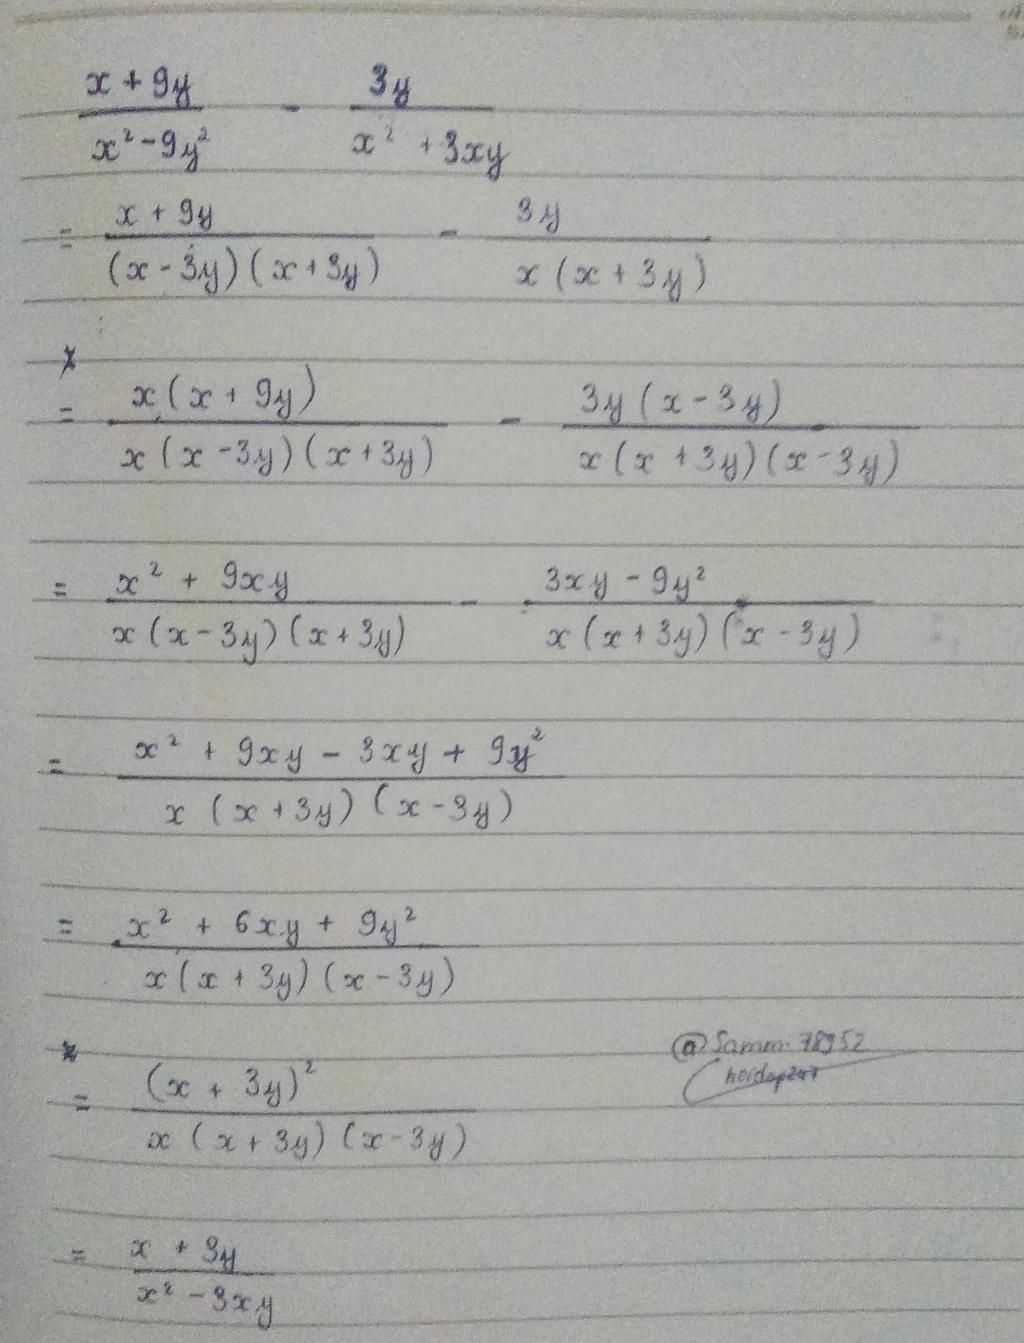 x + 9y / x² - 9y² - 3y / x² + 3xy
= x + 9y / (x - 3y)(x + 3y) - 3y / x(x + 3y)
= x(x + 9y) / x(x - 3y)(x + 3y) - 3y(x - 3y) / x(x + 3y)(x - 3y)
= x² + 9xy / x(x - 3y)(x + 3y) - 3xy - 9y² / x(x + 3y)(x - 3y)
= x² + 9xy - 3xy + 9y² / x(x + 3y)(x - 3y)
= x² + 6xy + 9y² / x(x + 3y)(x - 3y)
@Samm. 78952
hoidap247
= (x + 3y)² / x(x + 3y)(x - 3y)
= x + 3y / x² - 3xy